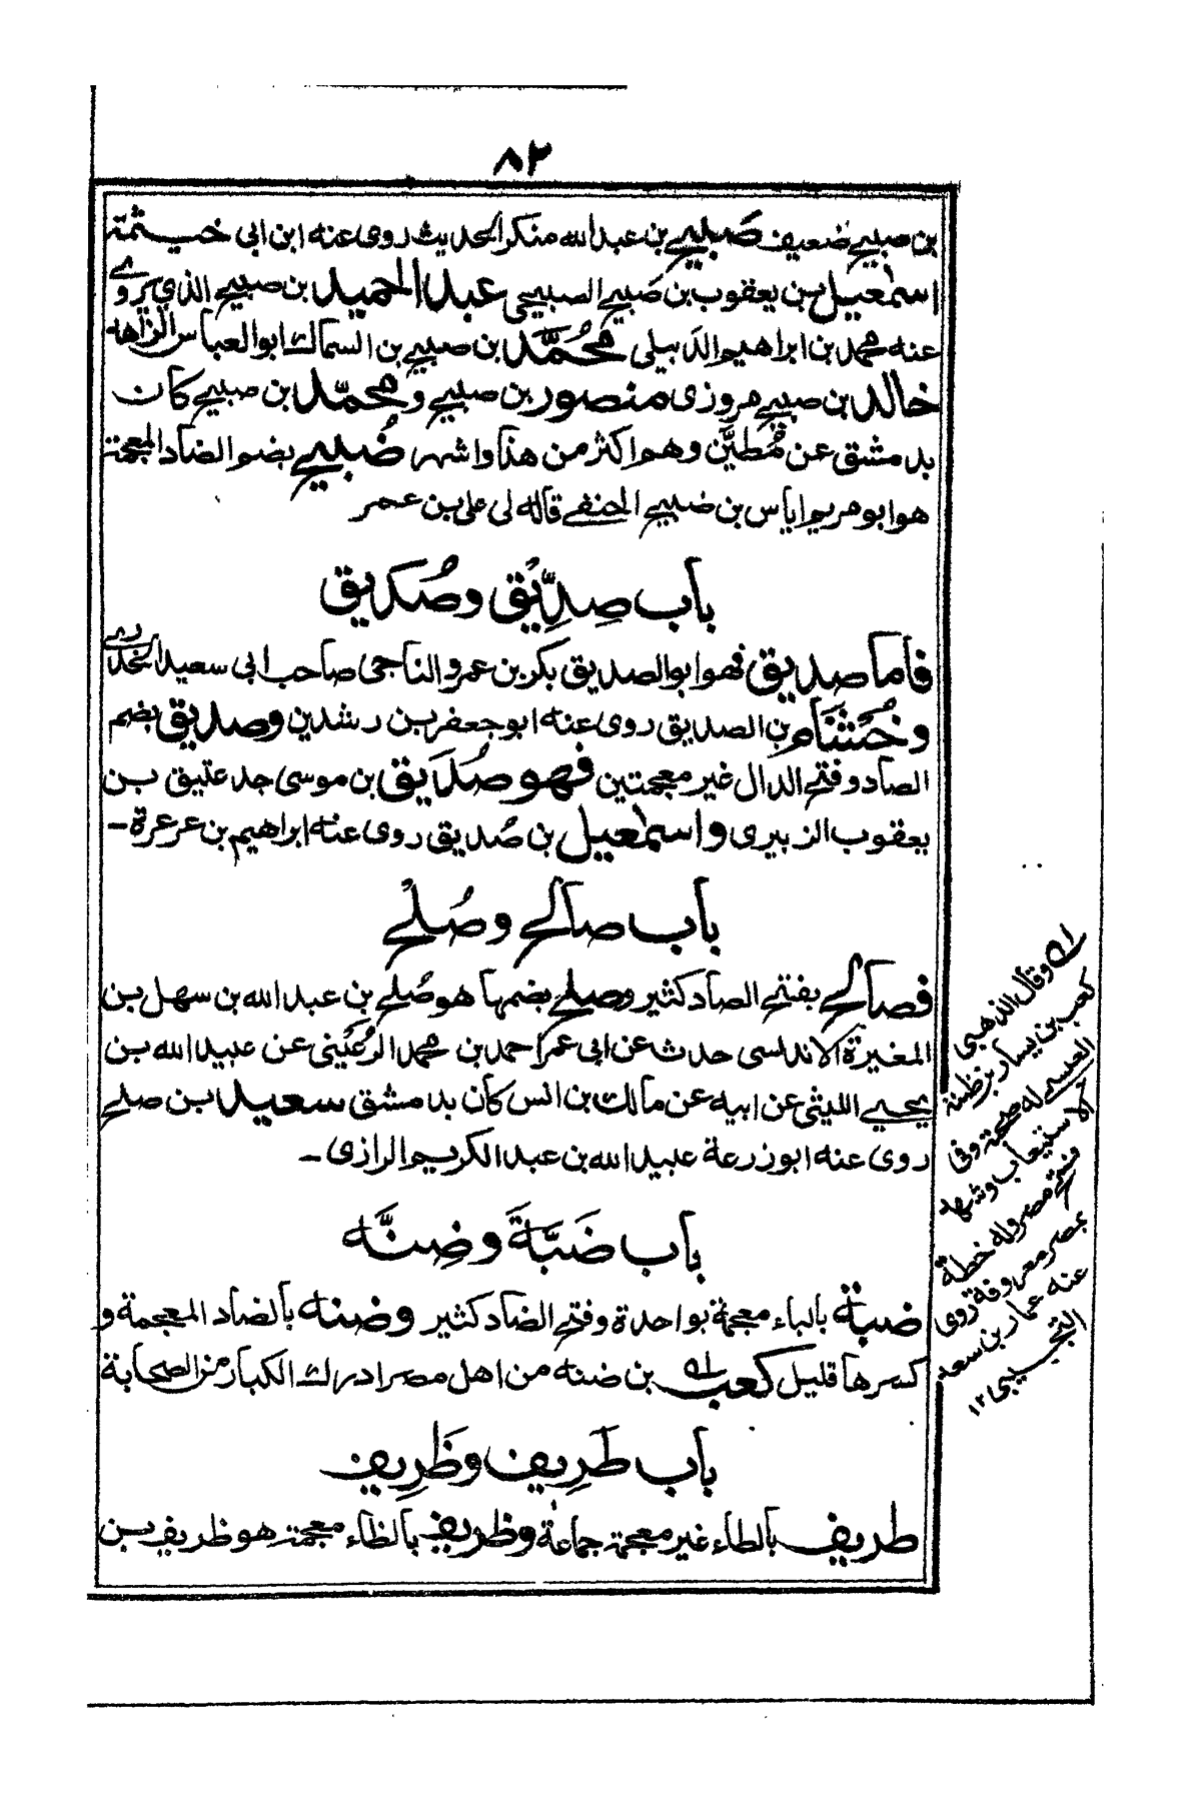 ٨٢
بن صبيح ضعيف صبيح بن عبد الله منكر الحديث روى عنه ابن ابى خيثمة
اسمٰعيل بن يعقوب بن صَبيح الصبيحى عبد الحميد بن صبيح الذي يروي
عنه محمد بن ابراهيم الدبيلى محُمَّد بن صبيح بن السماك ابو العباس الزاهد
خالد بن صبيح مروزى منصور بن صبيح و محمّد بن صبيح كان
بدمشق عن مُطيَّن وهو اكثر من هذا واشهر ضُبيح بضم الضاد المعجمة
هو ابو مريم اياس بن ضبيح الحنفي قاله لى على بن عمر
باب صِدِّيْق وصُدَيق
فاما صديق فهو ابو الصديق بكر بن عمرو الناجى صاحب ابى سعيد الخدري
وخُشَنَام بن الصديق روى عنه ابو جعفر بن رشدين وصديق بضم
الصاد وفتح الدال غير معجمتين فهو صُدَيق بن موسى جد عتيق بن
يعقوب الزبيرى واسمٰعيل بن صُديق روى عنه ابراهيم بن عرعرة –
باب صالح وصُلْح
فصالح بفتح الصاد كثير وصلح بضمها هو صُلح بن عبد الله بن سهل بن
المغيرة الاندلسى حدث عن ابى عمر احمد بن محمد الرُعَينى عن عبيد الله بن
يحيي الليثى عن ابيه عن مالك بن انس كان بدمشق سعيد بن صلح
روى عنه ابو زرعة عبيد الله بن عبد الكريم الرازى –
باب ضَبَّةَ وضِنَّه
ضبة بالباء معجمة بواحدة وفتح الضاد كثير وضنه بالضاد المعجمة و
كسرها قليل كعب له بن ضنه من اهل مصر ادرك الكبار من الصحابة
باب طَرِيف وظَرِيف
طريف بالطاء غير معجمة جماعة وظريف بالظاء معجمة هو ظريف بن
له وقال الذهبى
كعب بن يسار بن ضنة
العبسى له صحبة وفى
الاستيعاب وشهد
فتح مصر وله خطة
بمصر معروفة روى
عنه عمار بن سعد
التجيبى ١٢